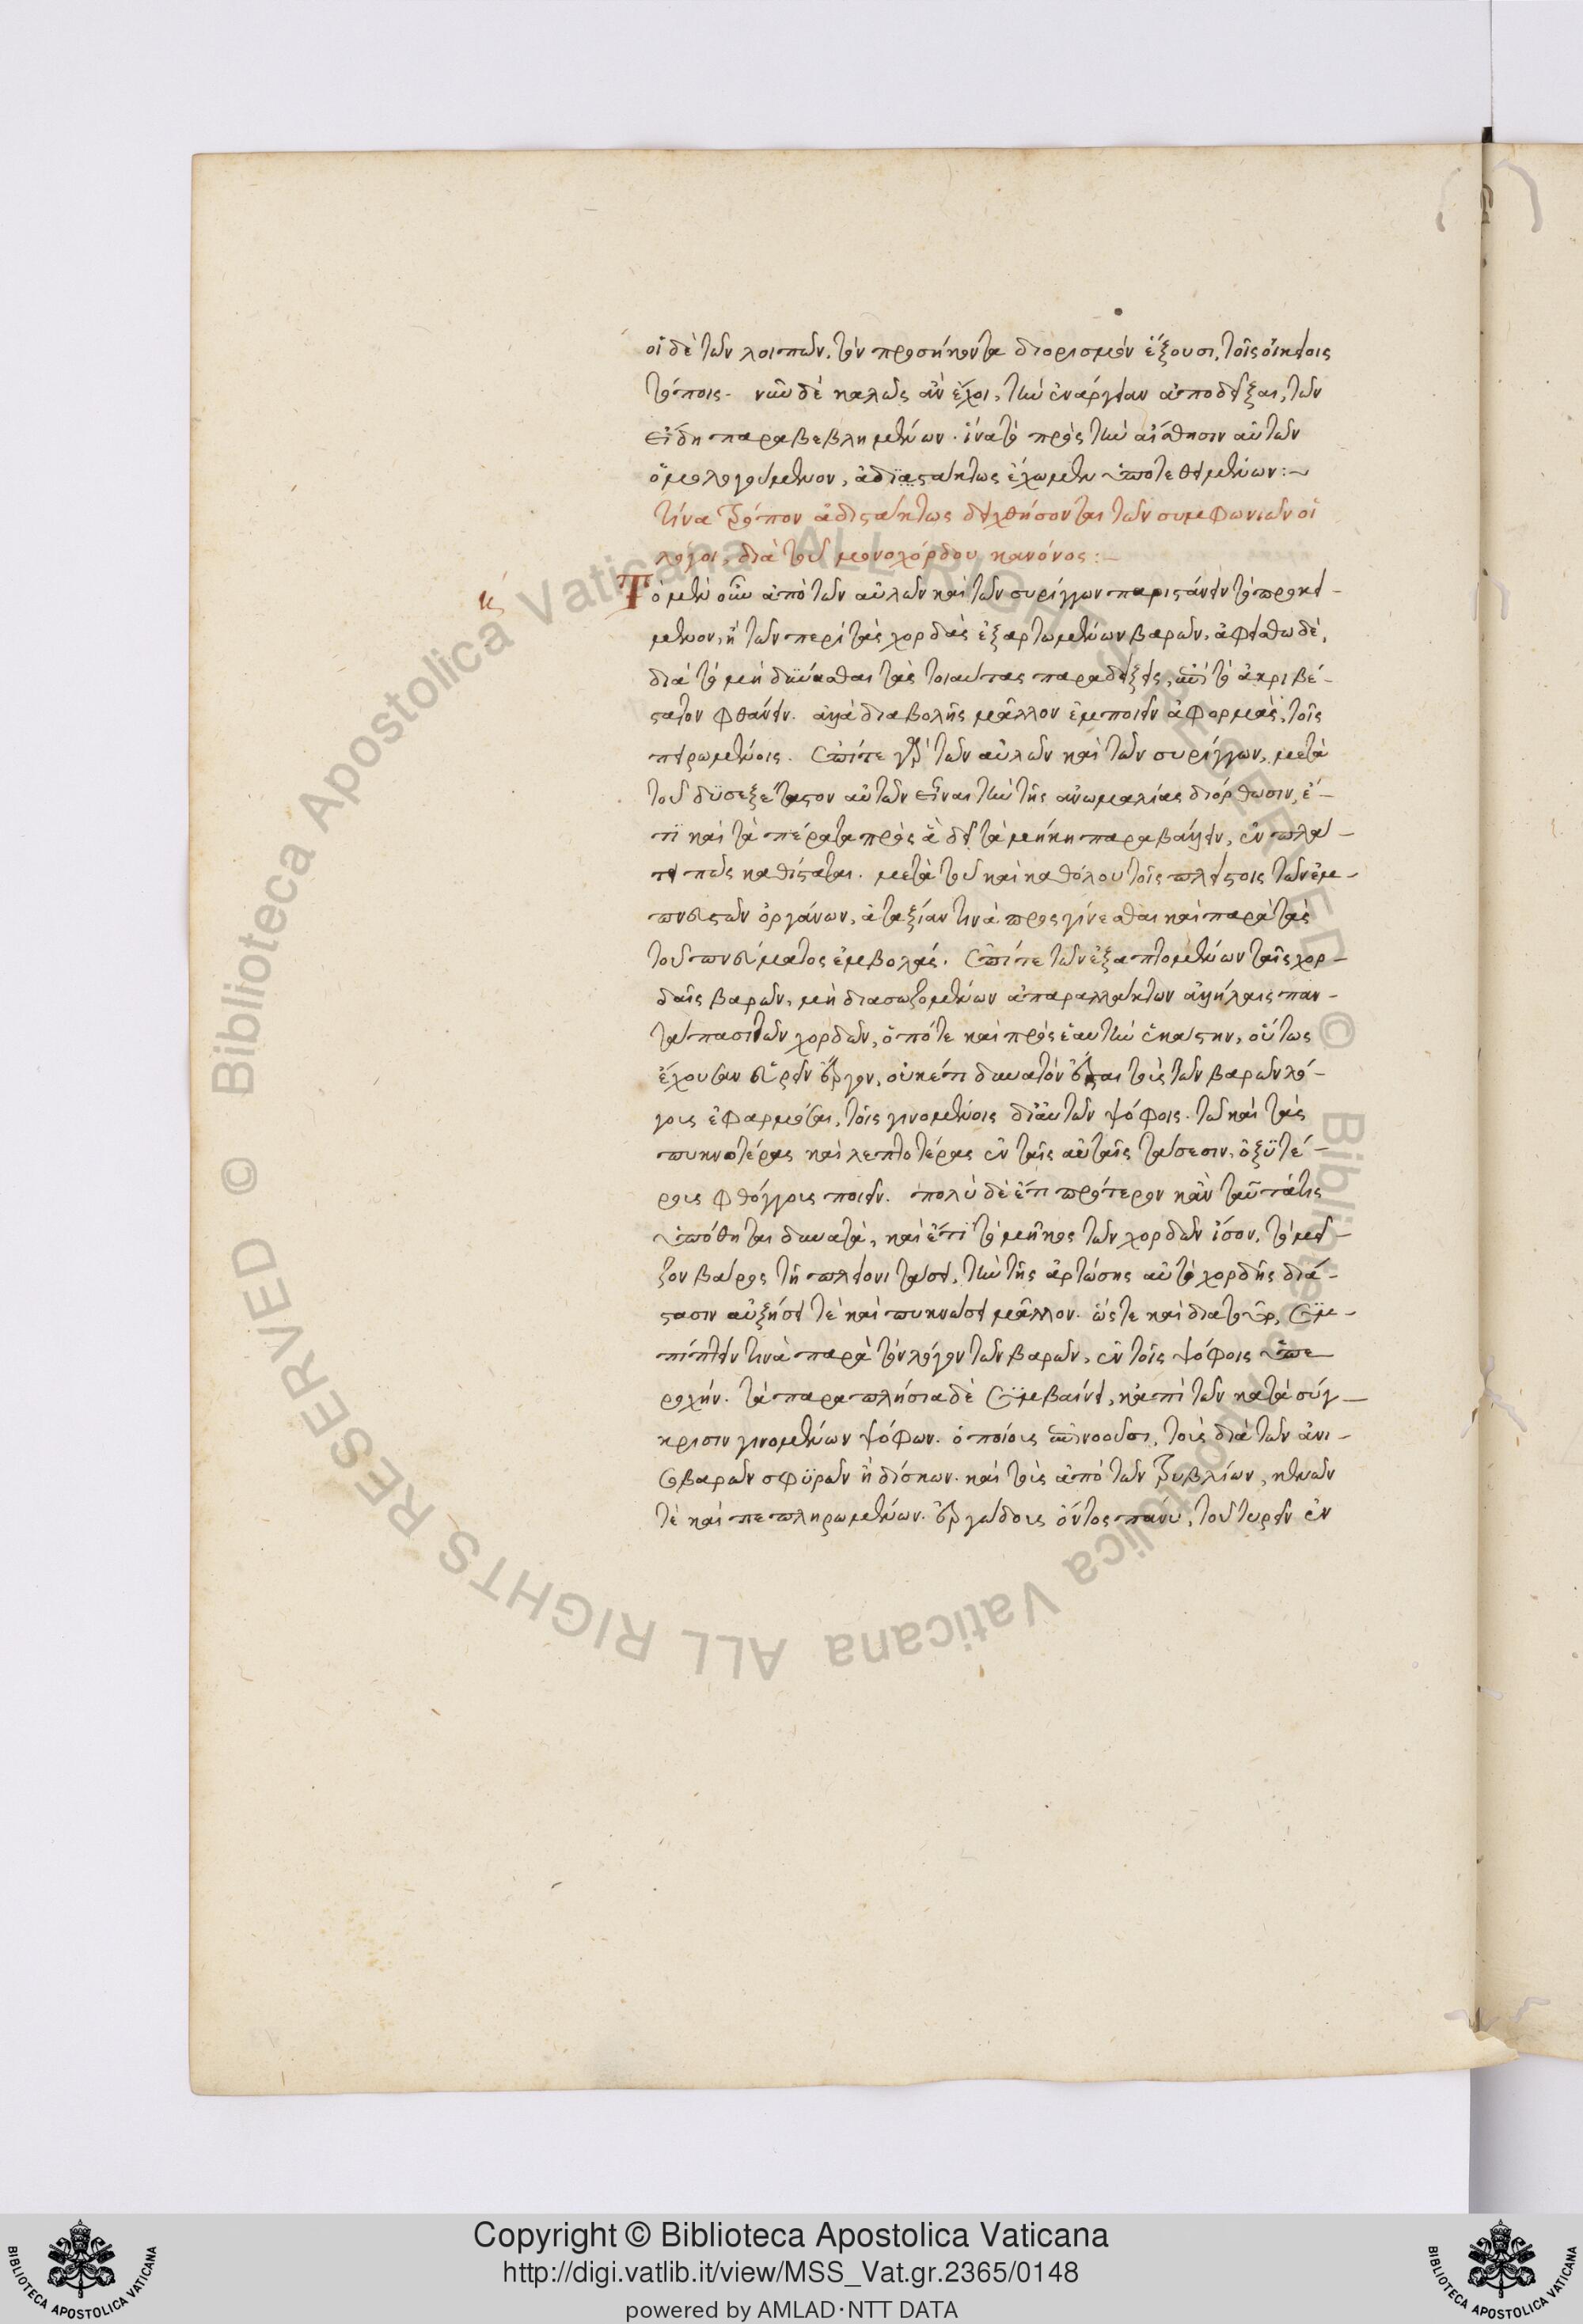 οἱ δὲ τῶν λοιπῶν, τὸν προσήκοντα διορισμὸν ἕξουσι, τοῖς οἰκείοις
τόποις. νῦν δὲ καλῶς ἂν ἔχοι, τὴν ἐνάργειαν ἀποδεῖξαι, τῶν
εἴδη παραβεβλημένων. ἵνα τὸ πρὸς τὴν αἴσθησιν αὐτῶν
ὁμολογούμενον, ἀδιστάκτως ἔχωμεν ὑποτεθειμένων:~
τίνα τρόπον ἀδιστάκτως δειχθήσονται τῶν συμφωνιῶν οἱ
λόγοι, διὰ τοῦ μονοχόρδου κανόνος:—
Τὸ μὲν οὖν ἀπὸ τῶν αὐλῶν καὶ τῶν συρίγγων παριστάνειν τὸ προκεί-
μενον, ἢ τῶν περὶ τὰς χορδὰς ἐξαρτωμένων βαρῶν, ἀφείσθω δὲ,
διὰ τὸ μὴ δύνασθαι τὰς τοιαύτας παραδείξεις, ἐπὶ τὸ ἀκριβέ-
στατον φθάνειν. ἀλλὰ διαβολῆς μᾶλλον ἐμποιεῖν ἀφορμὰς, τοῖς
πειρωμένοις. ἐπί τε γὰρ τῶν αὐλῶν καὶ τῶν συρίγγων, μετὰ
τοῦ δυσεξέταστον αὐτῶν εἶναι τὴν τῆς ἀνωμαλίας διόρθωσιν, ἔ-
τι καὶ τὰ πέρατα πρὸς ἃ δεῖ τὰ μήκη παραβάλλειν, ἐν πλά-
τει πως καθίσταται. μετὰ τοῦ καὶ καθόλου τοῖς πλείστοις τῶν ἐμ-
πνευστῶν ὀργάνων, ἀταξίαν τινὰ προσγίνεσθαι καὶ παρὰ τὰς
τοῦ πνεύματος ἐμβολάς. ἐπί τε τῶν ἐξαπτομένων ταῖς χορ-
δαῖς βαρῶν, μὴ διασωζομένων ἀπαραλλάκτων ἀλλήλαις παν-
τάπασι τῶν χορδῶν, ὁπότε καὶ πρὸς ἑαυτὴν ἑκάστην, οὕτως
ἔχουσαν εὑρεῖν ἔργον, οὐκέτι δυνατὸν ἔσται τοὺς τῶν βαρῶν λό-
γους ἐφαρμόσαι, τοῖς γινομένοις δι' αὐτῶν ψόφοις. τῷ καὶ τὰς
πυκνοτέρας καὶ λεπτοτέρας ἐν ταῖς αὐταῖς τάσεσιν, ὀξυτέ-
ρους φθόγγους ποιεῖν. πολὺ δὲ ἔτι πρότερον κἂν ταῦτά τις
ὑπόθηται δυνατὰ, καὶ ἔτι τὸ μῆκος τῶν χορδῶν ἴσον, τὸ μεῖ-
ζον βάρος τῇ πλείονι τάσει, τὴν τῆς ἀρτώσης αὐτὸ χορδῆς διά-
στασιν αὐξήσει τὲ καὶ πυκνώσει μᾶλλον. ὥστε καὶ διὰ τοῦτο, συμ-
πίπτειν τινὰ παρὰ τὸν λόγον τῶν βαρῶν, ἐν τοῖς ψόφοις ὑπε
ροχήν. τὰ παραπλήσια δὲ συμβαίνει, κἀπὶ τῶν κατὰ σύγ-
κρισιν γινομένων ψόφων. ὁποίους ἐπινοοῦσι, τοὺς διὰ τῶν ἀνι-
σοβαρῶν σφυρῶν ἢ δίσκων. καὶ τοὺς ἀπὸ τῶν τρυβλίων, κενῶν
τὲ καὶ πεπληρωμένων. ἐργώδους ὄντος πάνυ, τοῦ τηρεῖν ἐν